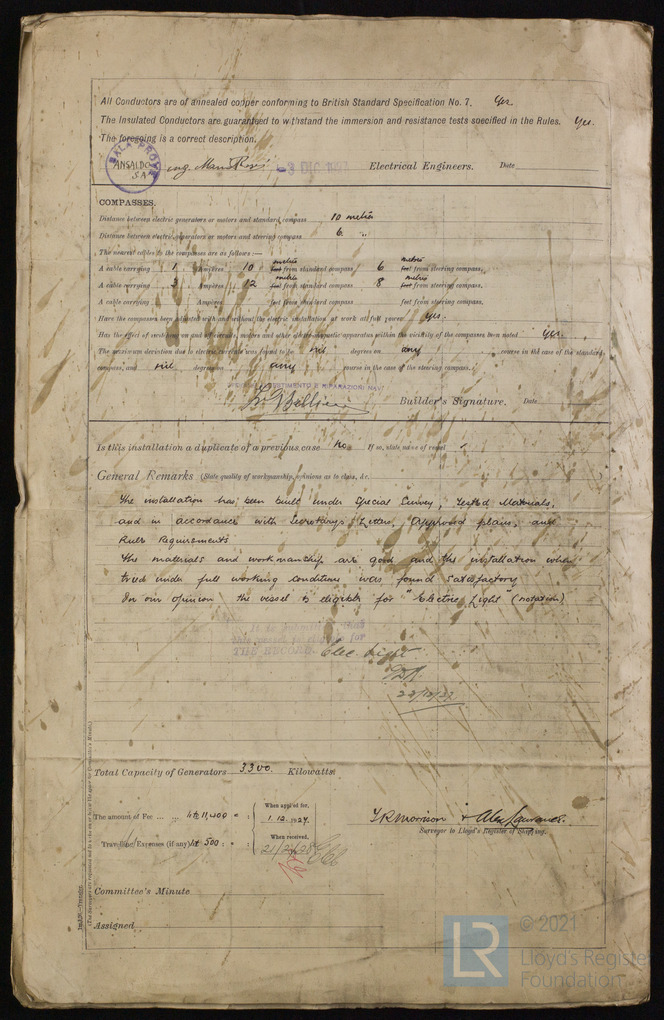 All Conductors are of annealed copper conforming to British Standard Specification No. 7. Yes.
The Insulated Conductors are guaranteed to withstand the immersion and resistance tests specified in the Rules. Yes.
The foregoing is a correct description.
SALA PROVE
ANSALDO
S.A.
ing. Mario
Electrical Engineers. Date
COMPASSES.
Distance between electric generators or motors and standard compass 10 metres
Distance between electric generators or motors and steering compass 6 "
The nearest cables to the compasses are as follows:—
A cable carrying 1 Ampères 10 metres feet from standard compass 6 metres feet from steering compass.
A cable carrying 3 Ampères 12 metres feet from standard compass 8 metres feet from steering compass.
A cable carrying Ampères feet from standard compass feet from steering compass.
Have the compasses been adjusted with and without the electric installation at work at full power Yes.
Has the effect of switching on and off circuits, motors and other electro-magnetic apparatus within the vicinity of the compasses been noted Yes.
The maximum deviation due to electric currents was found to be nil degrees on any course in the case of the standard
compass, and nil degrees on any course in the case of the steering compass.
ALLESTIMENTO E RIPARAZIONI NAVI
Builder's Signature. Date
Is this installation a duplicate of a previous case No If so, state name of vessel
General Remarks (State quality of workmanship, opinions as to class, &c.
The installation has been built under Special Survey, Tested Materials,
and in accordance with Secretary's Letters, Approved plans, and
Rule Requirements
The materials and workmanship are good and the installation when
tried under full working conditions was found satisfactory
In our opinion the vessel is eligible for "Electric Light" (notation)
THE RECORD. Elec. Light
22/12/27
Total Capacity of Generators 3300. Kilowatts
The amount of Fee ... Lit 11,400
When applied for,
1.12.1927
Travelling Expenses (if any) Lit 500
When received,
T R Morrison & Alex Lawrance.
Surveyor to Lloyd's Register of Shipping.
Committee's Minute
Assigned
LR
© 2021
Lloyd's Register
Foundation